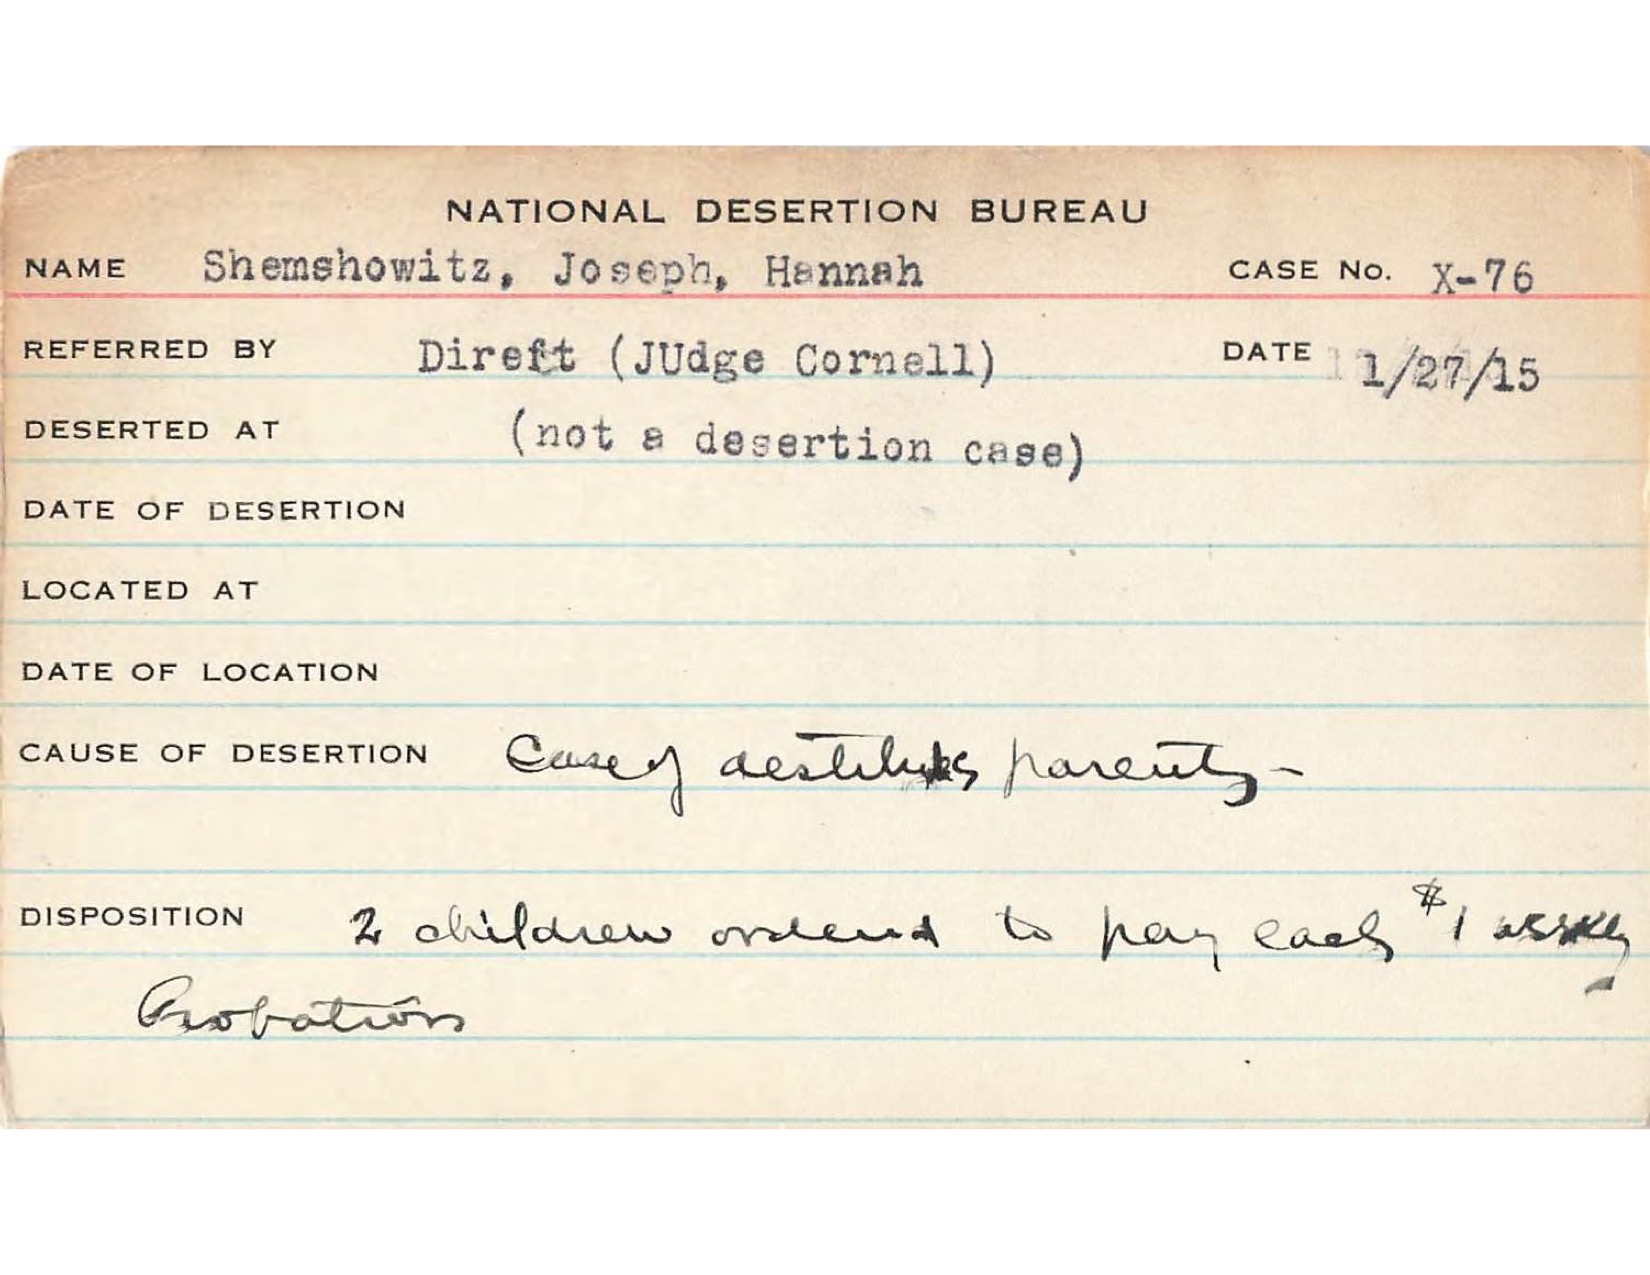 NATIONAL DESERTION BUREAU
NAME Shemshowitz, Joseph, Hannah CASE No. X-76
REFERRED BY Direft (JUdge Cornell) DATE 1/27/15
DESERTED AT (not a desertion case)
DATE OF DESERTION
LOCATED AT
DATE OF LOCATION
CAUSE OF DESERTION Case of destitute parents -
DISPOSITION 2 children ordered to pay each $1 weekly
Probation